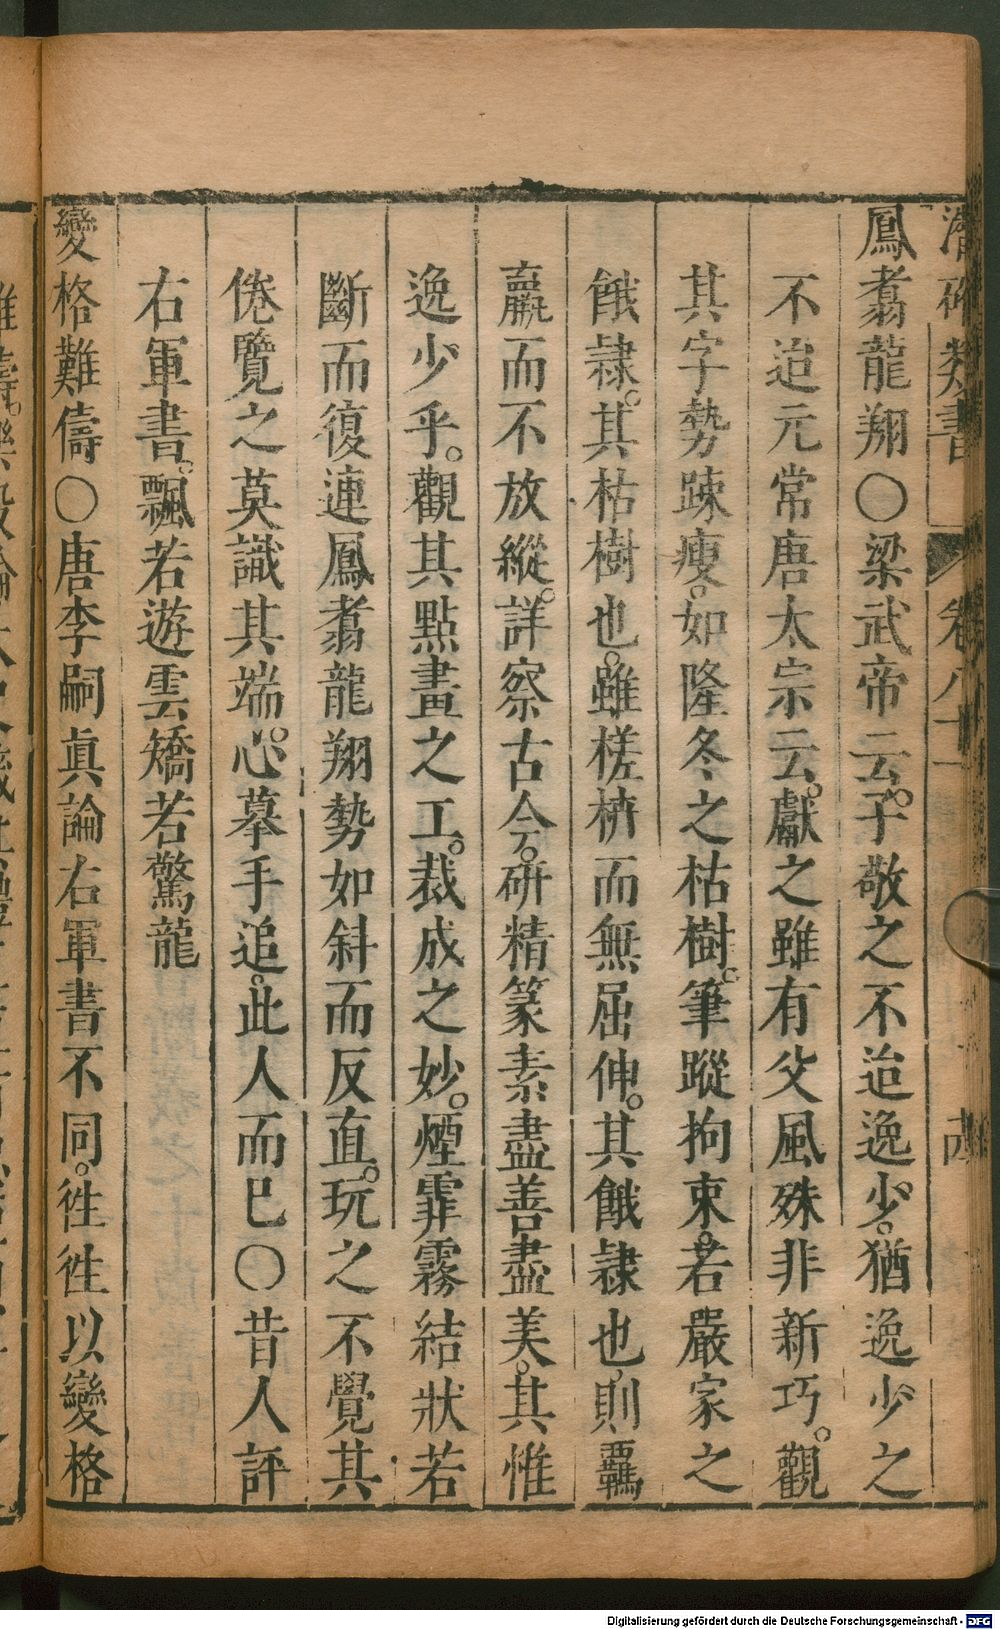 類書 卷八十一
鳳翥龍翔〇梁武帝云。子敬之不迨逸少。猶逸少之
不迨元常唐太宗云。獻之雖有父風殊非新巧。觀
其字勢踈瘦。如隆冬之枯樹。筆蹤拘束。若嚴家之
餓隷。其枯樹也。雖槎枿而無屈伸。其餓隷也則羈
羸而不放縱。詳察古今。研精篆素盡善盡美。其惟
逸少乎。觀其點畫之工。裁成之妙。煙霏霧結狀若
斷而復連鳳翥龍翔勢如斜而反直。玩之不覺其
倦覽之莫識其端。心摹手追。此人而已〇昔人評
右軍書。飄若遊雲矯若驚龍
變格難儔〇唐李嗣眞論右軍書不同。徃徃以變格
Digitalisierung gefördert durch die Deutsche Forschungsgemeinschaft - DFG